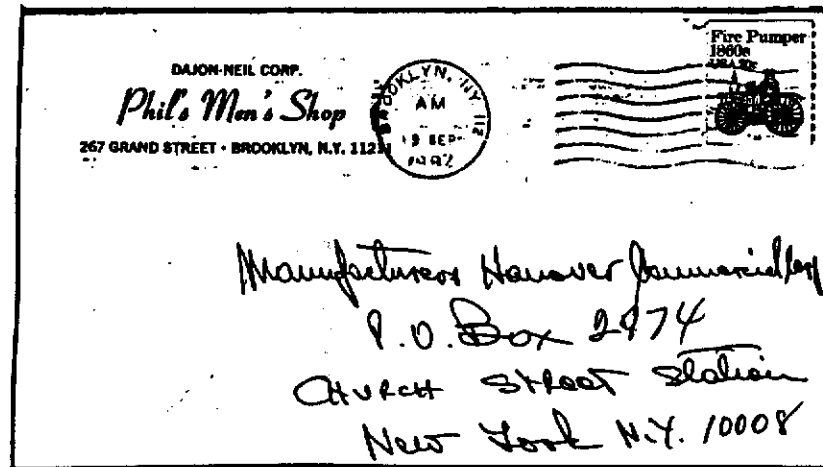 DAJON-NEIL CORP.
Phil's Men's Shop
267 GRAND STREET • BROOKLYN, N.Y. 11211
BROOKLYN, NY 112
AM
19 SEP
1982
Fire Pumper
1860s
USA 20c
Manufacturers Hanover Commercial Corp
P.O. Box 2974
CHURCH STREET Station
New York N.Y. 10008